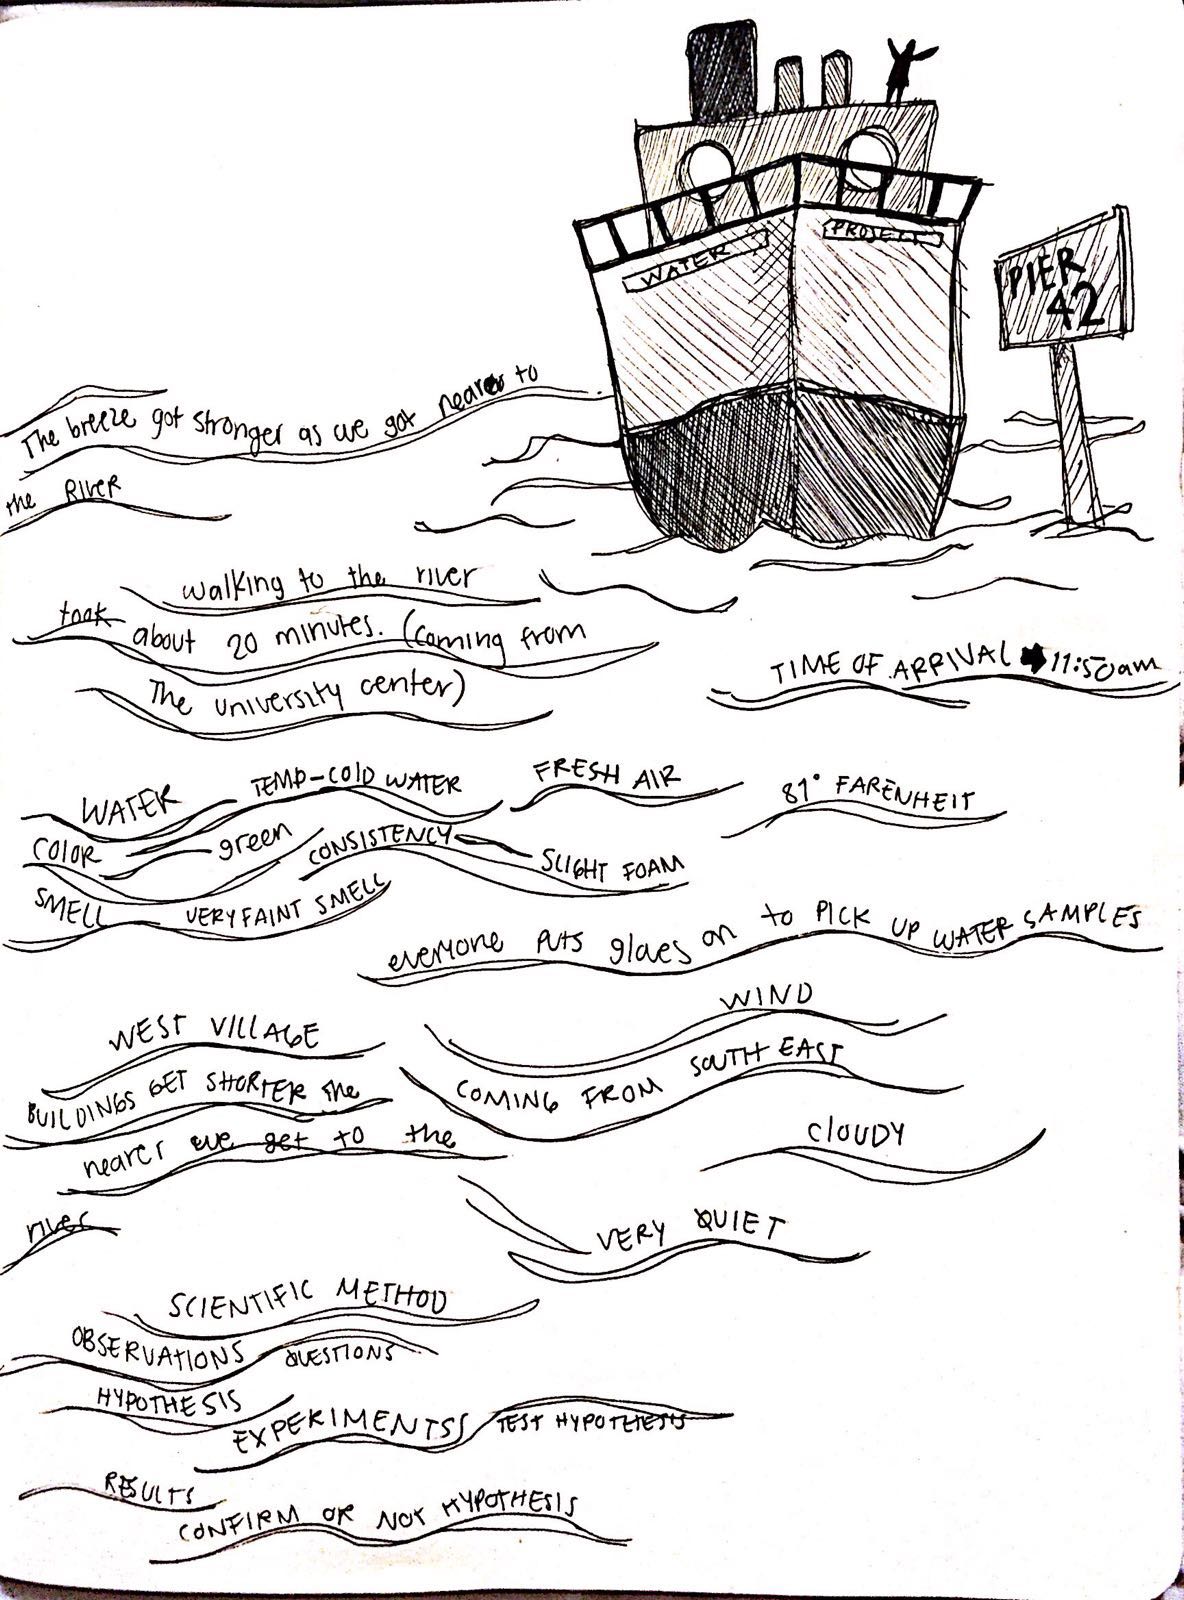 WATER
PROJECT
PIER
42
The breeze got stronger as we got nearer to
the RIVER
walking to the river
took about 20 minutes. (coming from
The university center)
TIME OF ARRIVAL → 11:50am
WATER TEMP-COLD WATER
FRESH AIR
81° FARENHEIT
COLOR green
CONSISTENCY SLIGHT FOAM
SMELL VERY FAINT SMELL
everyone puts gloves on to PICK UP WATER SAMPLES
WEST VILLAGE
BUILDINGS GET SHORTER the
nearer we get to the
river
WIND
COMING FROM SOUTH EAST
CLOUDY
VERY QUIET
SCIENTIFIC METHOD
OBSERVATIONS QUESTIONS
HYPOTHESIS
EXPERIMENTSS TEST HYPOTHESIS
RESULTS
CONFIRM OR NOT HYPOTHESIS